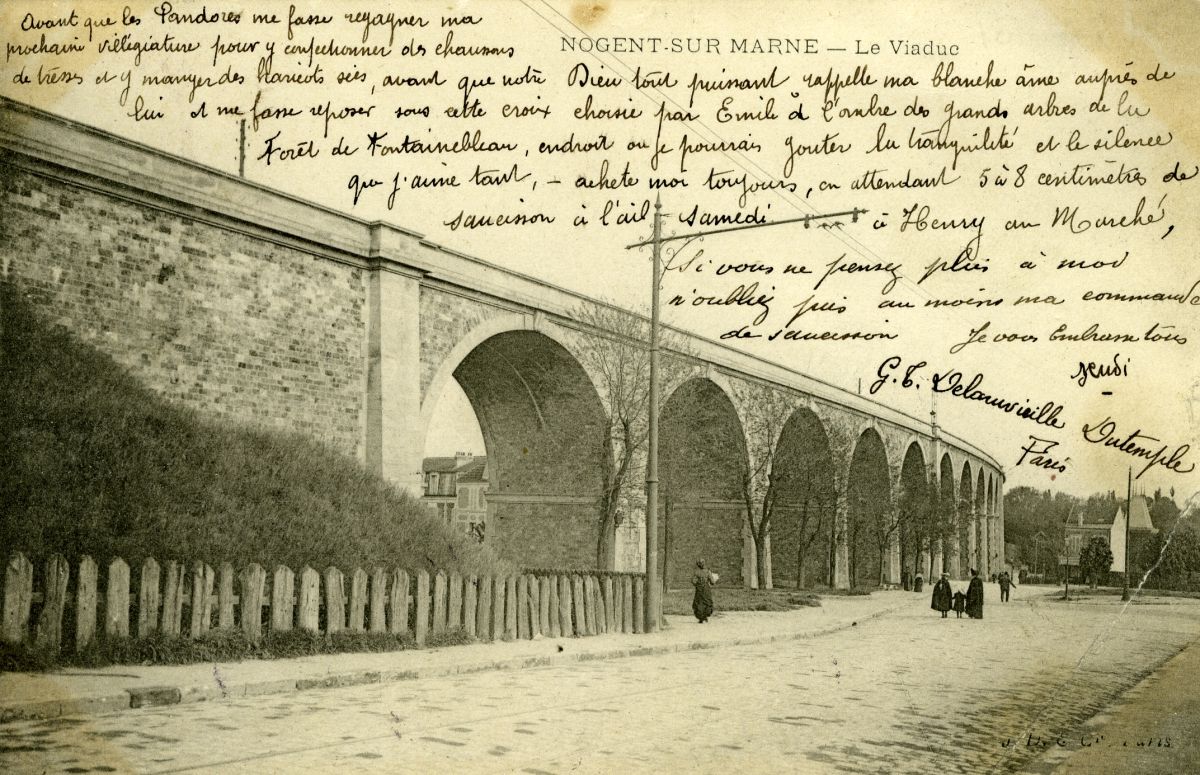 Avant que les Pandores me fasse regagner ma
prochaine villégiature pour y confectionner des chaussons
NOGENT-SUR MARNE — Le Viaduc
de tresses et y manger des haricots secs, avant que notre Dieu tout puissant rappelle ma blanche âme auprès de
lui et me fasse reposer sous cette croix choisie par Emile à l'ombre des grands arbres de la
Forêt de Fontainebleau, endroit ou je pourrais gouter la tranquilité et le silence
que j'aime tant, – achete moi toujours, en attendant 5 à 8 centimètres de
saucisson à l'ail samedi à Henry au Marché,
Si vous ne pensez plus à moi
n'oubliez pas au moins ma commande
de saucisson Je vous Embrasse tous
Jeudi
G. T. Delaruvieille Dutemple
Paris